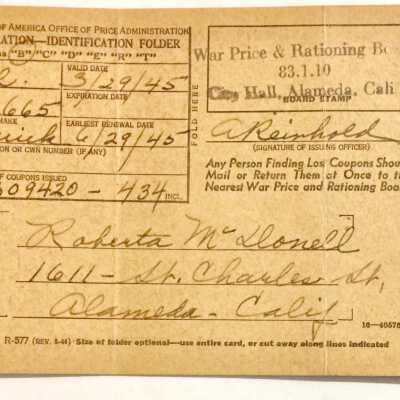 OF AMERICA OFFICE OF PRICE ADMINISTRATION
RATION—IDENTIFICATION FOLDER
"B" "C" "D" "E" "R" "T"
2. VALID DATE 3/29/45
665 EXPIRATION DATE
MAKE EARLIEST RENEWAL DATE
Buick 6/29/45
ION OR CWN NUMBER (IF ANY)
OF COUPONS ISSUED
609420 - 434 INCL.
FOLD HERE
War Price & Rationing Bo
83.1.10
City Hall, Alameda, Cali
BOARD STAMP
A Reinhold
(SIGNATURE OF ISSUING OFFICER)
Any Person Finding Los Coupons Shou
Mail or Return Them at Once to t
Nearest War Price and Rationing Boa
Roberta McDonell
1611 - St. Charles St,
Alameda - Calif
16—40576
R-577 (REV. 8-44) Size of folder optional—use entire card, or cut away along lines indicated